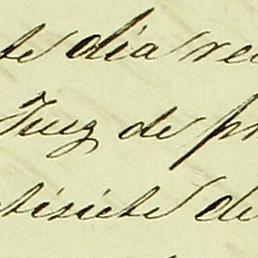 te dia re
Juez de pr
tisiete de